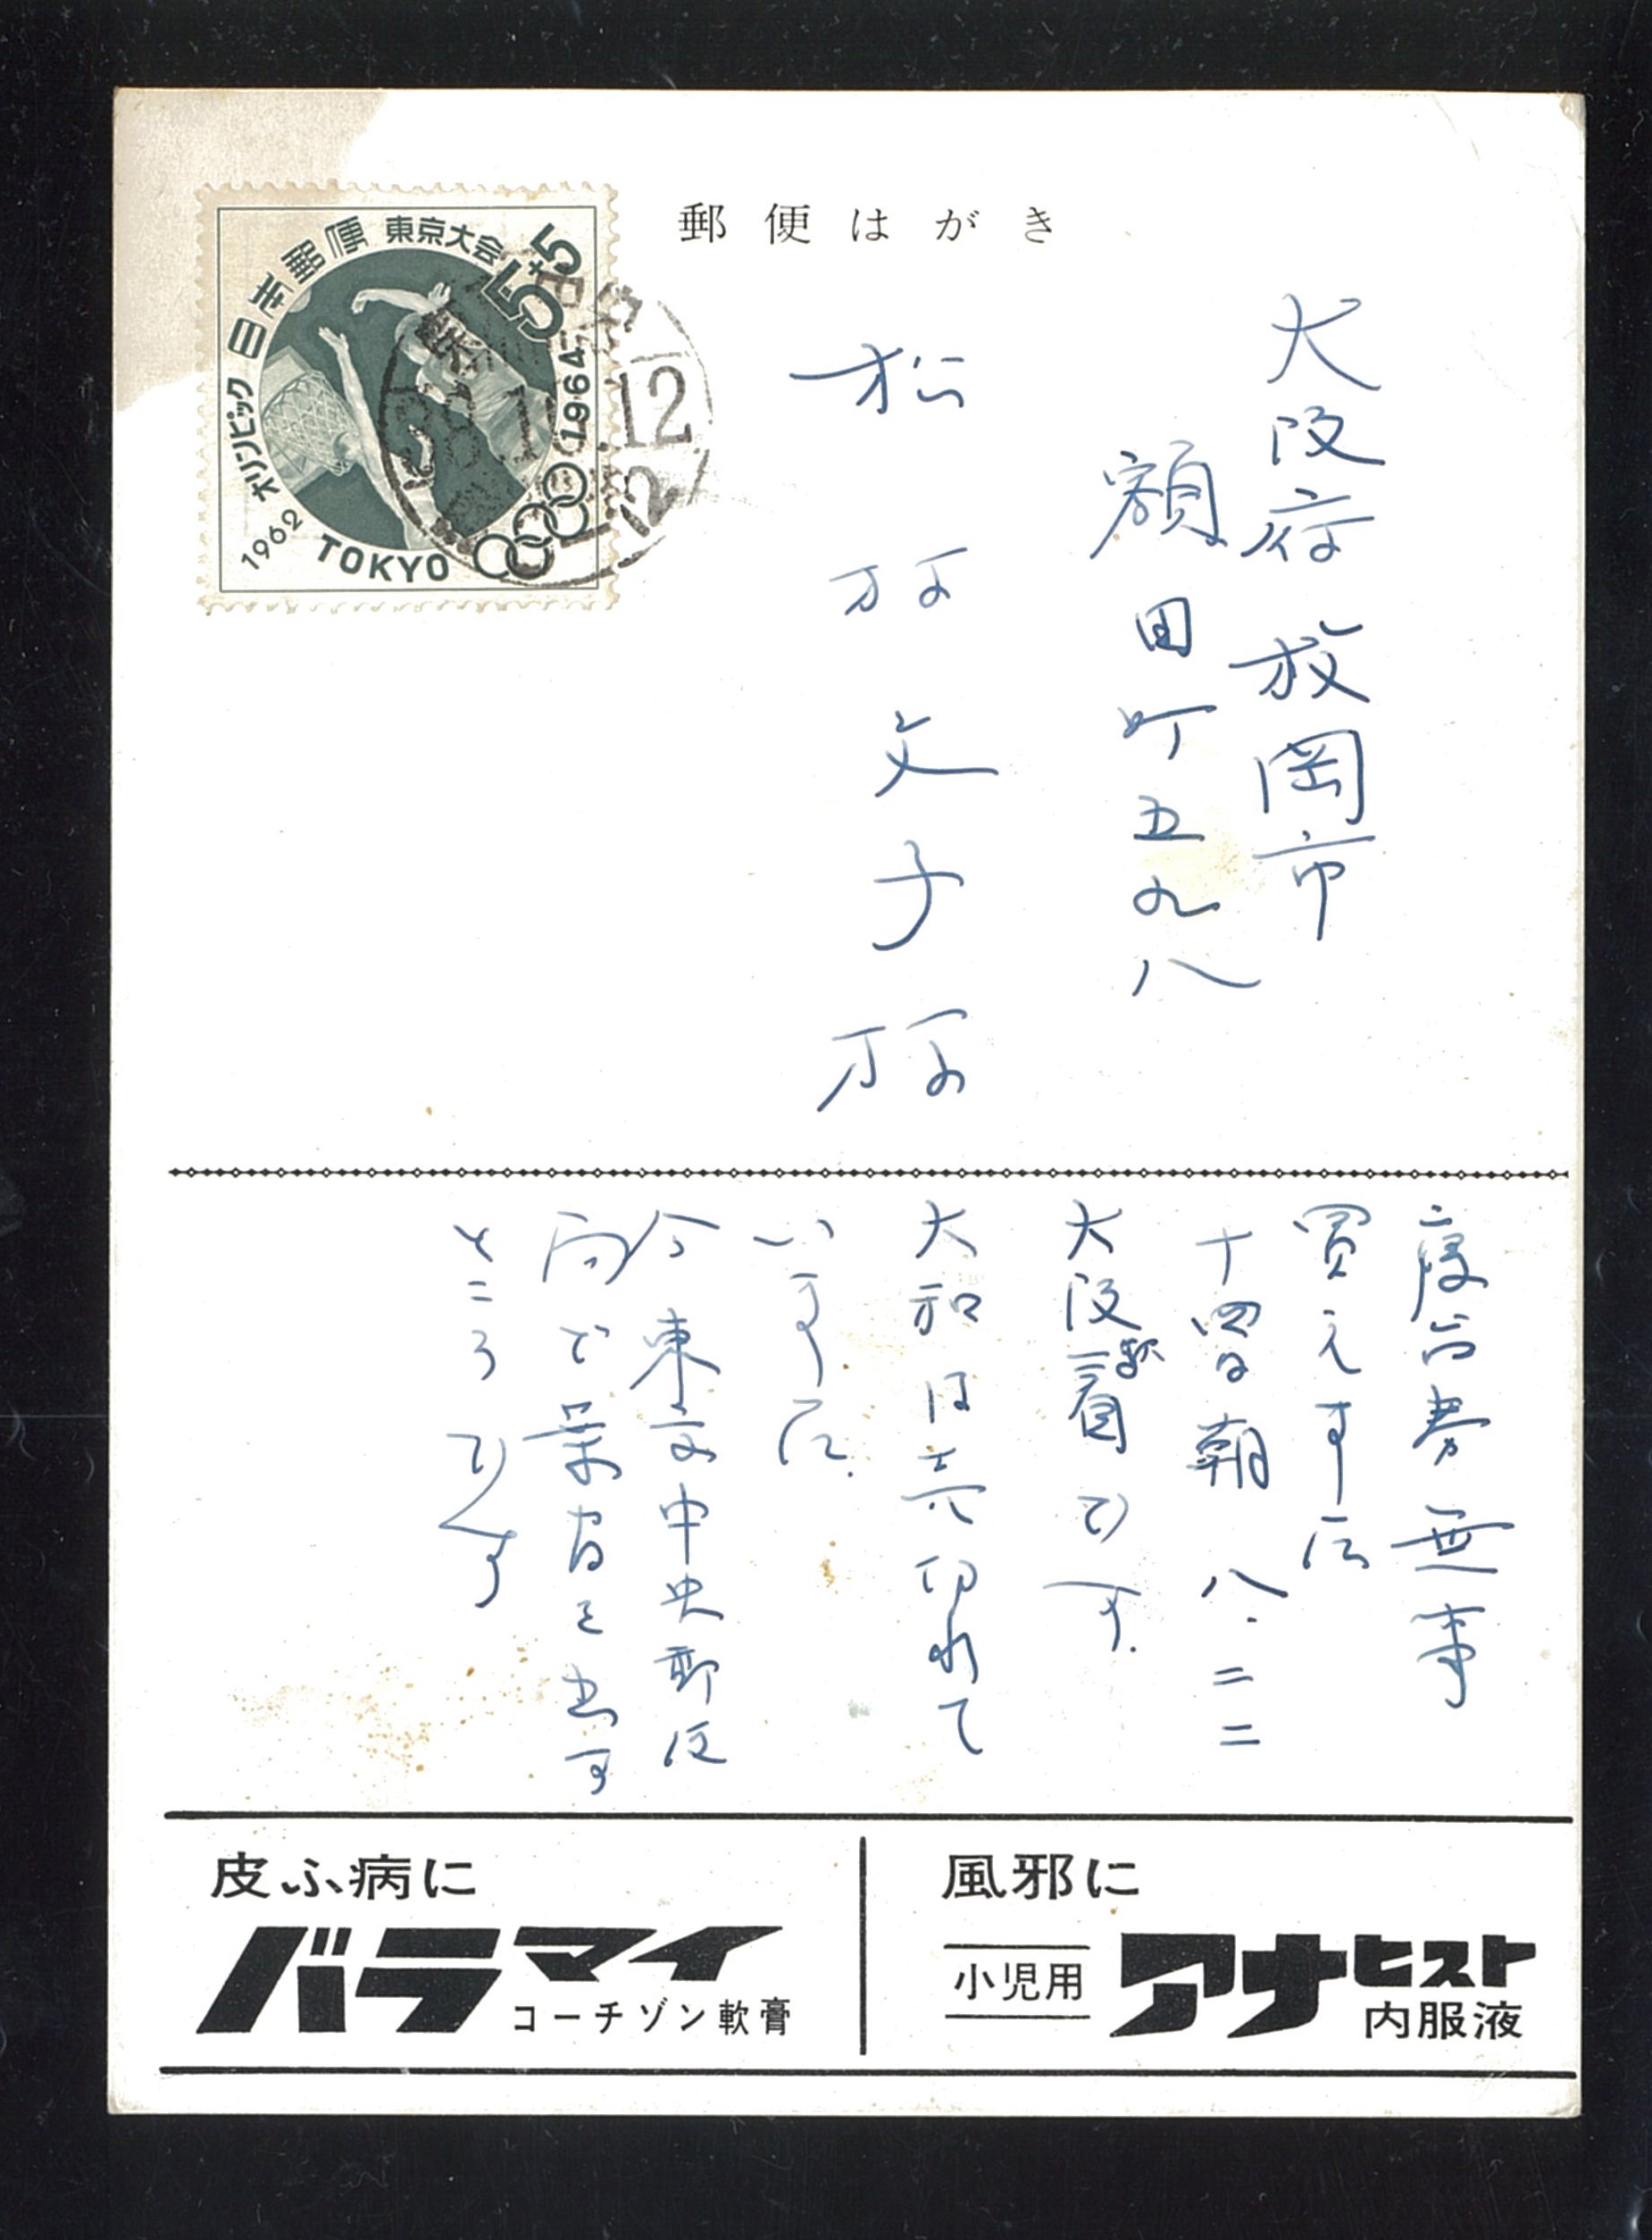 郵便はがき
日本郵便 東京大会
5+5
オリンピック
1964
1962
TOKYO
38.11.12
大阪府枚岡市
額田町五九八
松 文子様
寝台券無事
買えました
十四日朝八・二二
大阪駅着です.
大和は売切れて
いました.
今東京中央郵便
局で葉書を出す
ところです
皮ふ病に
バラマイ
コーチゾン軟膏
風邪に
小児用
アナヒスト
内服液